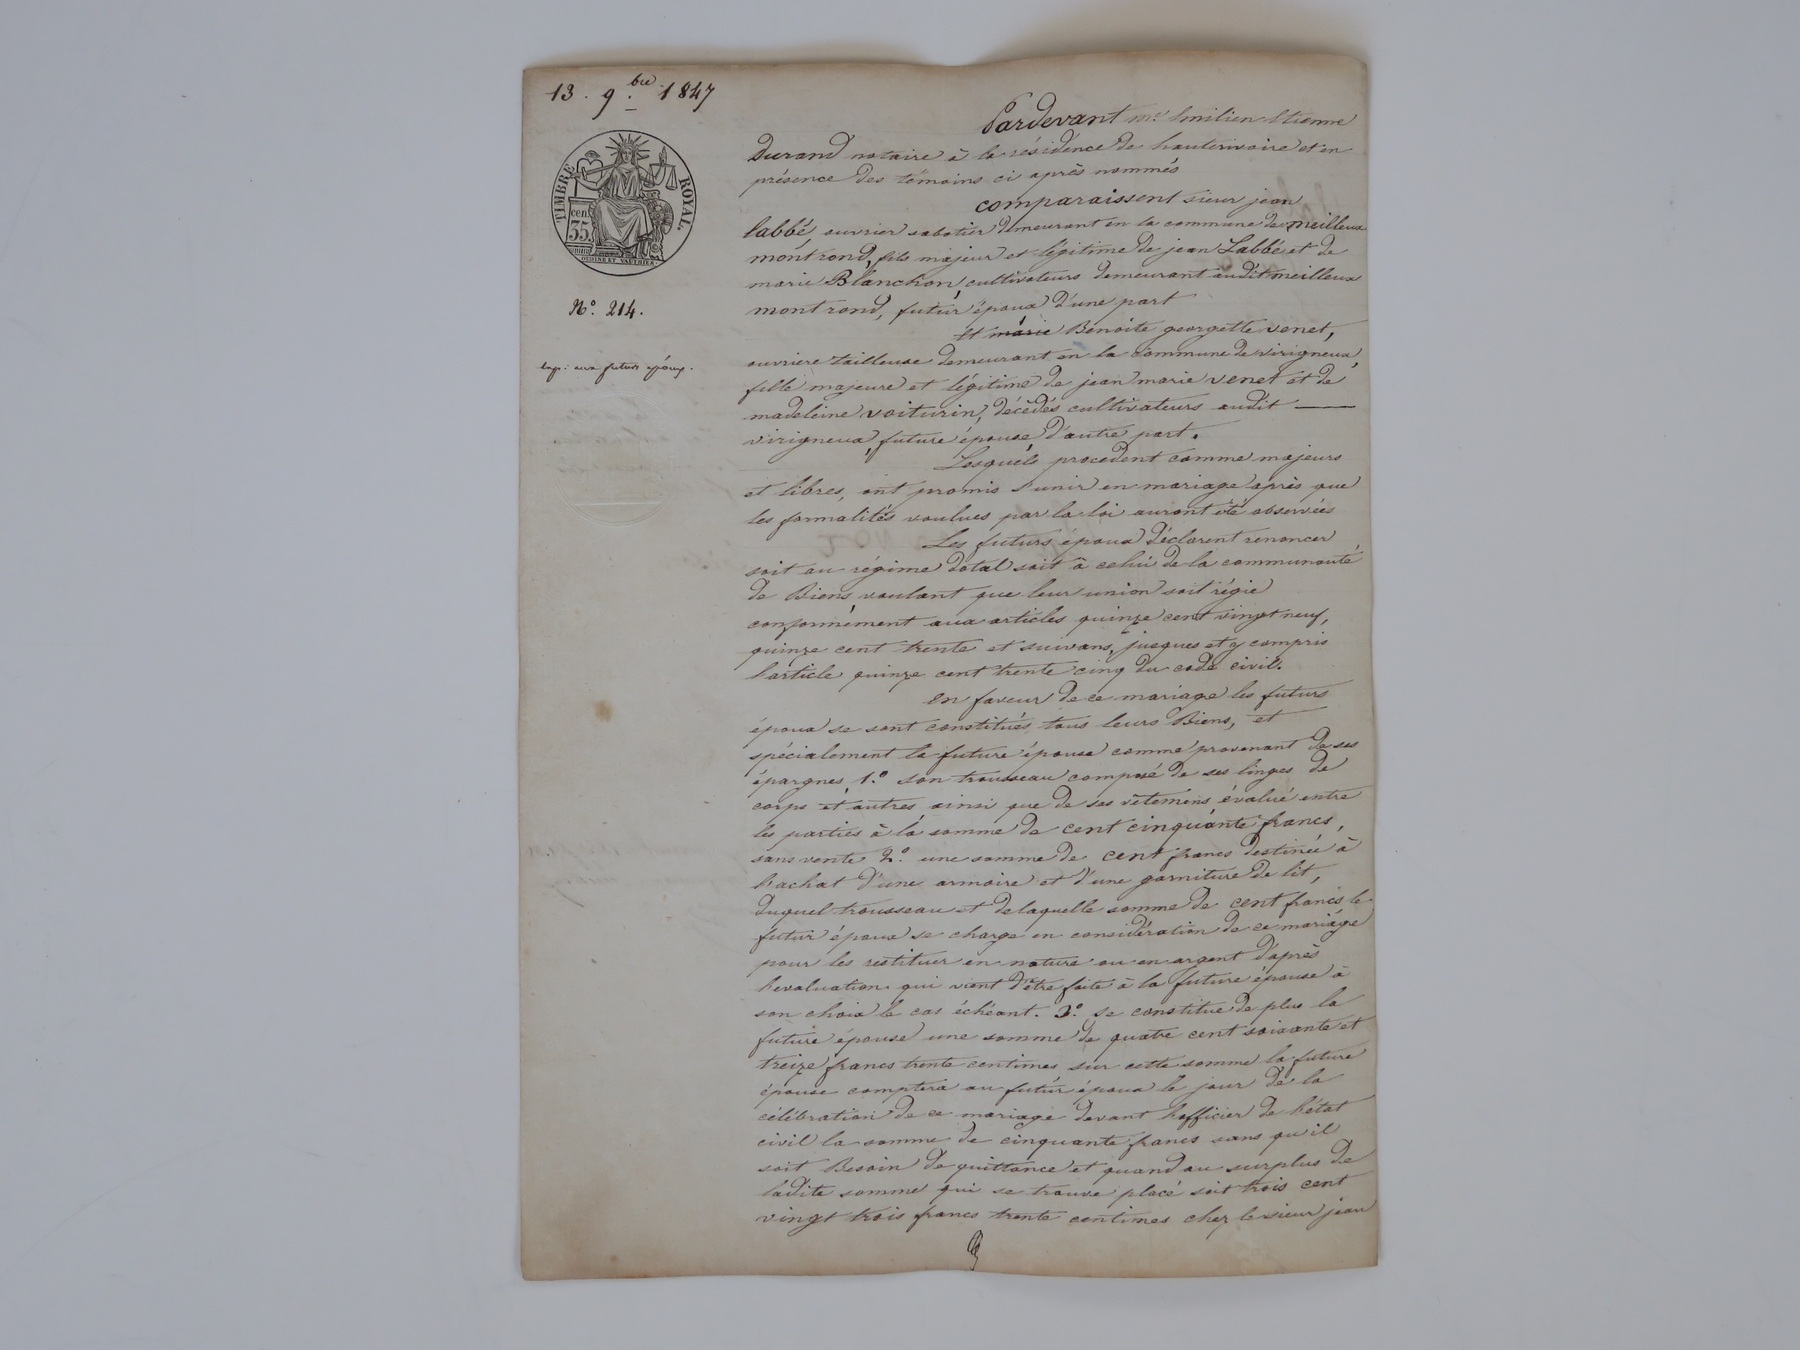 13. 9.bre 1847
TIMBRE ROYAL.
cen.
35.
OUDINÉ ET VAUTHIER.
N.o 214.
exp: aux futurs époux.
Pardevant me Emilien Etienne
Durand notaire à la résidence de hauterivoire et en
présence des témoins ci après nommés
comparaissent sieur jean
labbé, ouvrier sabotier demeurant en la commune de meilleux
montrond, fils majeur et légitime de jean Labbé et de
marie Blanchon, cultivateurs demeurant audit meilleux
montrond, futur époux d'une part
Et marie Benoite georgette venet,
ouvriere tailleuse demeurant en la commune de virigneux,
fille majeure et légitime de jean marie venet et de
madeleine voiturin, décédés cultivateurs audit
virigneux, future épouse d'autre part.
Lesquels procedent comme majeurs
et libres, ont promis s'unir en mariage après que
les formalités voulues par la loi auront été observées
Les futurs époux déclarent renoncer
soit au régime dotal soit à celui de la communauté
de Biens, voulant que leur union soit régie
conformément aux articles quinze cent vingt neuf,
quinze cent trente et suivans, jusques et y compris
l'article quinze cent trente cinq du code civil.
En faveur de ce mariage les futurs
époux se sont constitués tous leurs Biens, et
spécialement la future épouse comme provenant de ses
épargnes, 1.o son trousseau composé de ses linges de
corps et autres ainsi que de ses vêtemens, évalué entre
les parties à la somme de cent cinquante francs,
sans vente 2.o une somme de cent francs destinée à
l'achat d'une armoire et d'une garniture de lit,
duquel trousseau et de laquelle somme de cent francs le
futur époux se charge en considération de ce mariage
pour les restituer en nature ou en argent d'après
l'evaluation qui vient d'être faite à la future épouse à
son choix le cas échéant. 3.o se constitue de plus la
future épouse une somme de quatre cent soixante et
treize francs trente centimes sur cette somme la future
épouse comptera au futur époux le jour de la
célébration de ce mariage devant l'officier de l'état
civil la somme de cinquante francs sans qu'il
soit Besoin de quittance et quand au surplus de
ladite somme qui se trouve placé soit trois cent
vingt trois francs trente centimes chez le sieur jean